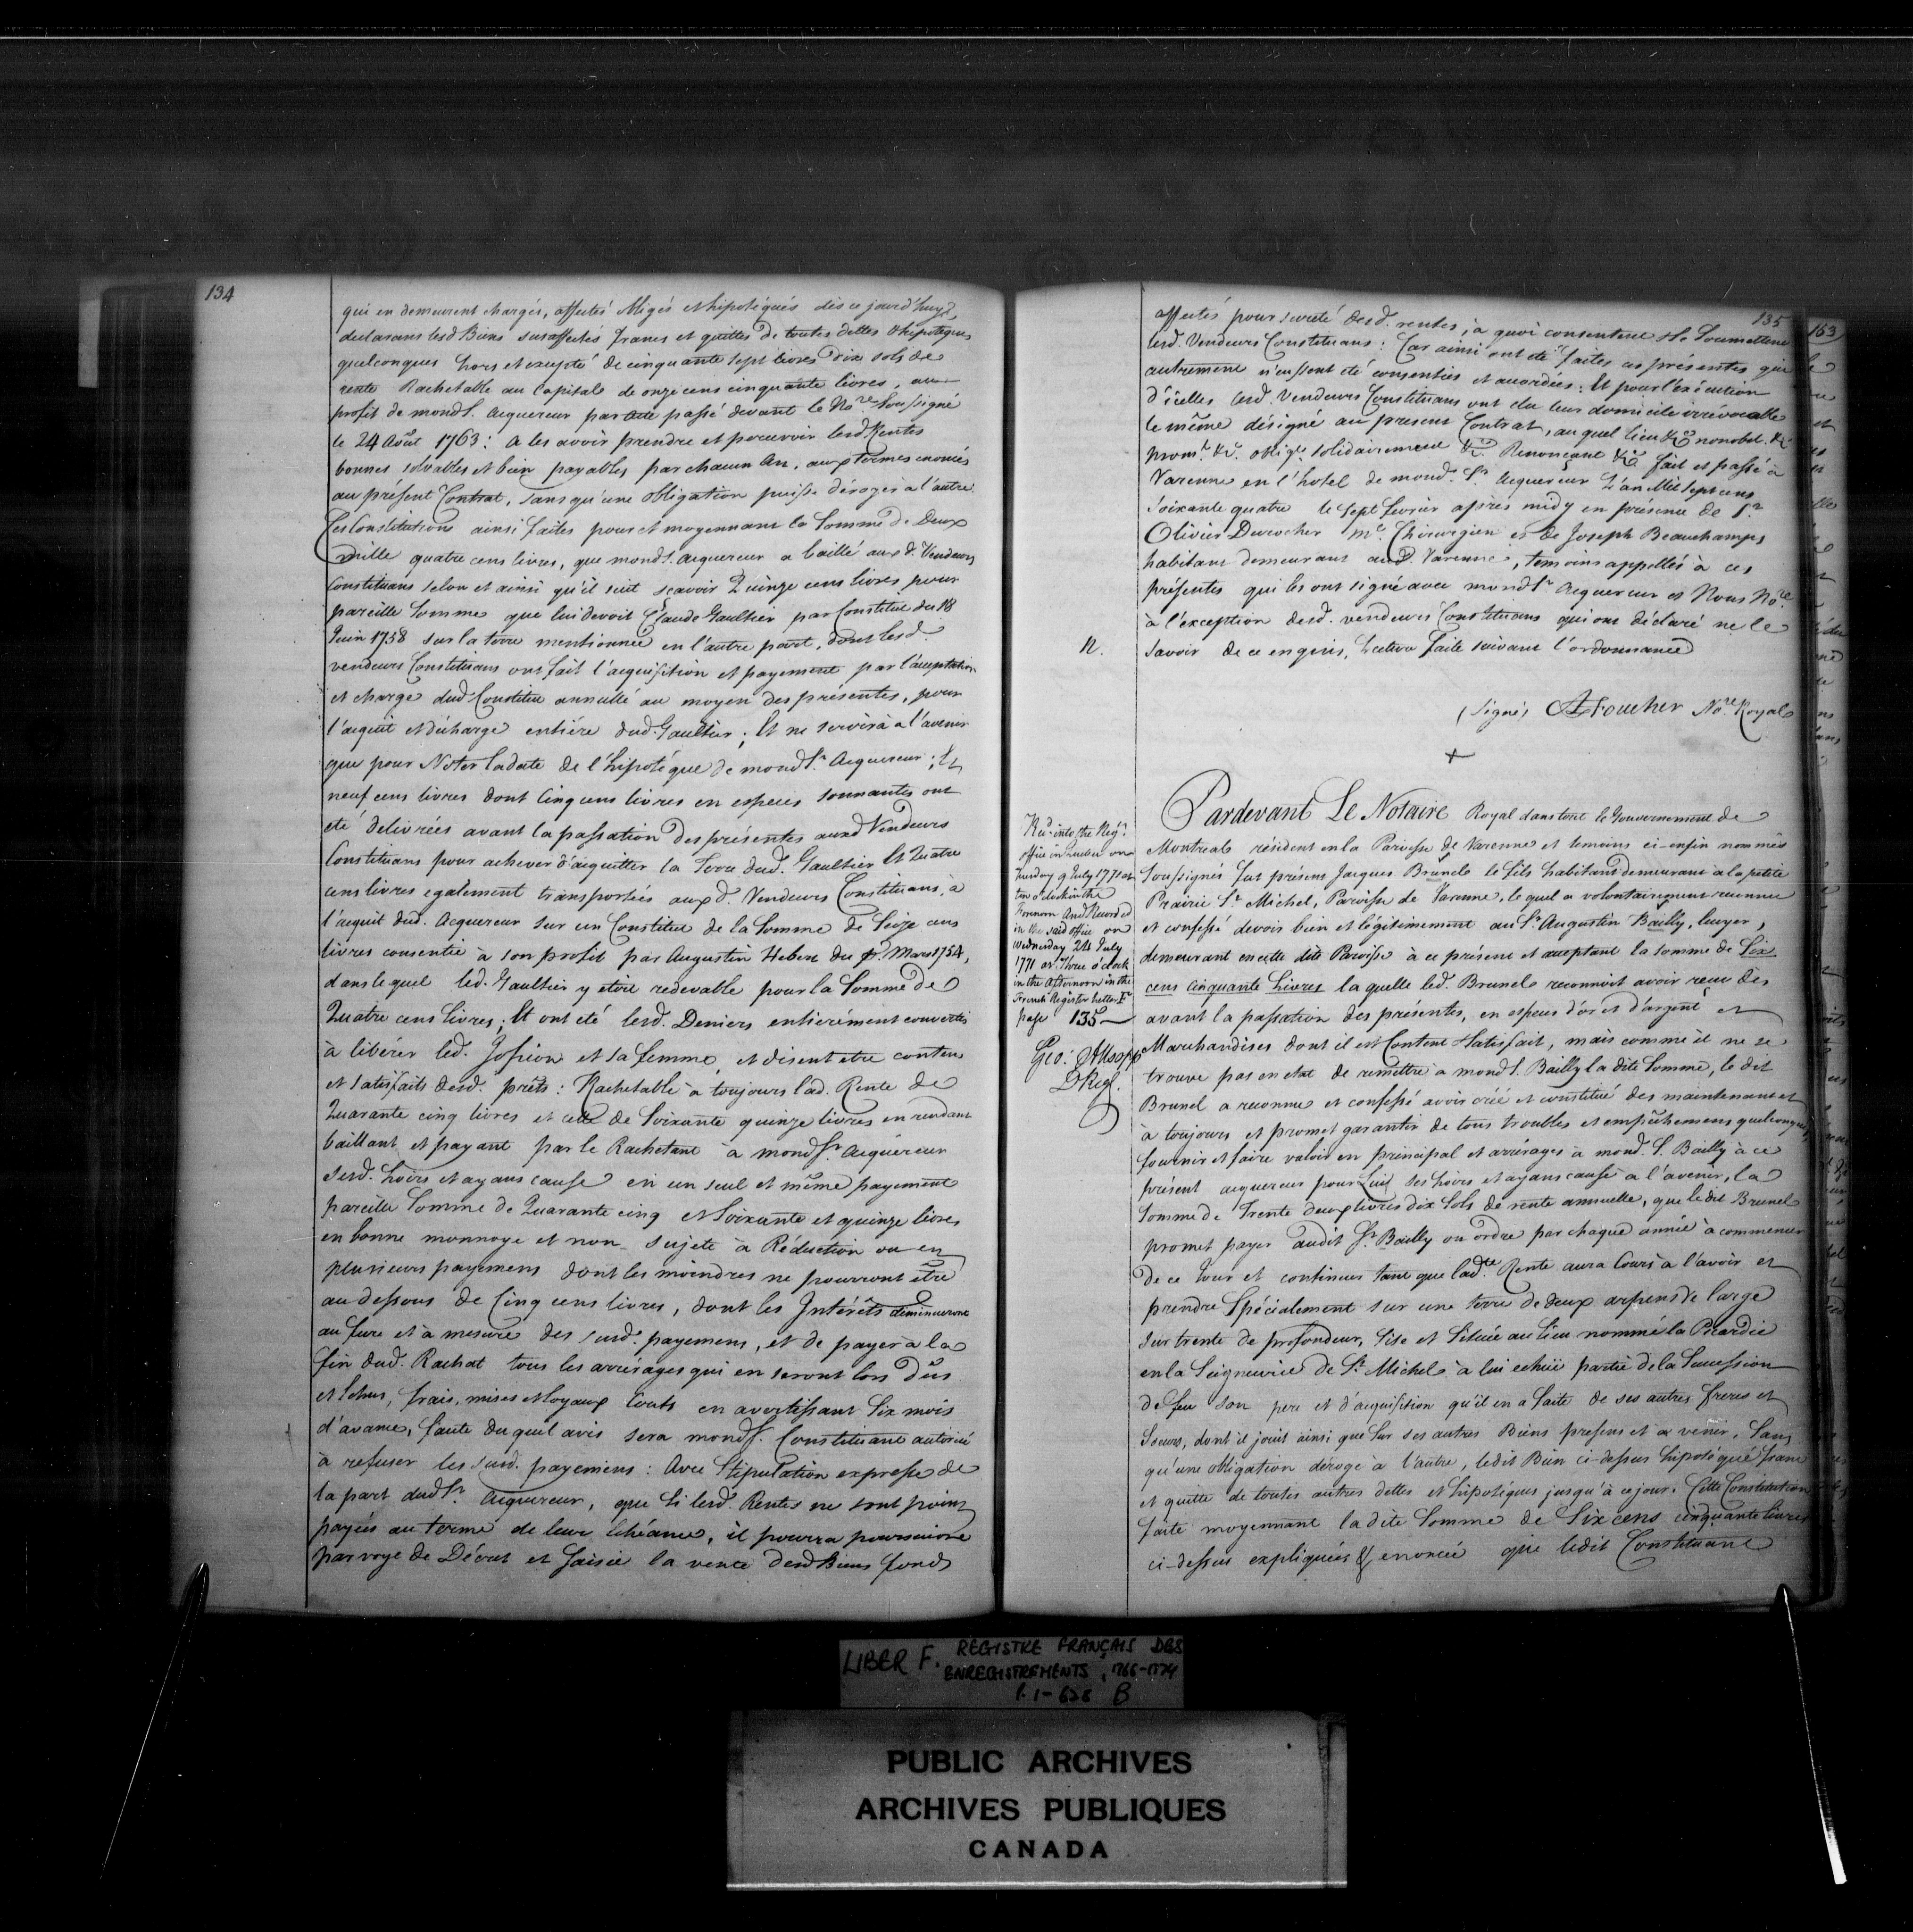 134
qui en demeurent chargés, affectés obligés et hipotéqués dès ce jourd'huy,
declarans lesd Biens susaffectés francs et quittes de toutes dettes & hipotéques
quelconques hors et excepté de cinquante sept livres dix sols de
rente Rachetable au capital de onze cens cinquante livres, au
profit de mond S. acquereur par acte passé devant le No.re Soussigné
le 24 Août 1763: a les avoir prendre et percevoir lesd Rentes
bonnes solvables et bien payables, par chacun An, aux termes énoncés
au présent Contrat, sans qu'une obligation puisse déroger à l'autre.
Ces Constitutions ainsi faites pour et moyennant la Somme de Deux
mille quatre cens livres, que mond S. acquereur a baillé aux d. Vendeurs
Constituans selon et ainsi qu'il suit scavoir Quinze cens livres pour
pareille Somme que lui devoit Claude Gaultier par Constitut du 18
Juin 1758 sur la terre mentionnée en l'autre part, dont lesd.
vendeurs Constituans ont fait l'acquisition et payement par l'acceptation
et charge dud Constitut annullé au moyen des présentes, pour
l'acquit et décharge entière dud. Gaultier; Et ne servira à l'avenir
que pour Noter la date de l'hipotéque de mond S.r Acquereur; Et
neuf cens livres dont Cinq cens livres en especes sonnantes ont
eté delivrées avant la passation des présentes auxd Vendeurs
Constituans pour achever d'acquitter la Terre dud. Gaultier Et Quatre
cens livres également transportées aux d. Vendeurs Constituans, à
l'acquit dud. Acquereur sur un Constitut de la Somme de Seize cens
livres consentie à son profit par Augustin Hebert du Mars 1754,
dans lequel led. Gaultier y etoit redevable pour la Somme de
Quatre cens Livres; Et ont été lesd. Deniers entierément convertis
à libérer led. Josion et sa femme, et disent etre contens
et satisfaits desd. prêts: Rachetable à toujours lad. Rente de
Quarante cinq livres et celle de Soixante quinze livres en rendant
baillant et payant par le Rachetant à mond Sr. Acquereur
Sesd. hoirs et ayans cause en un seul et même payement
pareille Somme de Quarante cinq et Soixante et quinze livres
en bonne monnoye et non sujete à Réduction ou en
plusieurs payemens dont les moindres ne pourront être
au dessous de Cinq cens livres, dont les Intérêts diminueront
au fure et à mesure des susd. payemens, et de payer à la
fin dud. Rachat tous les arrérages qui en seront lors dûs
et Echus, frais, mises et loyaux Couts en avertissant Six mois
d'avance, faute duquel avis sera mond S. Constituant autorisé
à refuser les susd. payemens: Avec Stipulation expresse de
la part dud Sr. Acquereur, que Si lesd. Rentes ne sont point
payées au terme de leur Echéance, il pourra poursuivre
par voye de Décret et Saisie la vente desd Biens fonds
135
affectés pour sureté desd. rentes, à quoi consentent et Se Soumettent
lesd. Vendeurs Constituans: Car ainsi ont été faites ces présentes qui
autrement n'eussent été consenties et accordées. Et pour l'exécution
d'icelles lesd. Vendeurs Constituans ont élu leur domicile irrévocable
le même désigné au present Contrat, au quel lieu &ca nonobst. &c
prom.t &c. oblig.t solidairement &c. Renonçant &ca fait et passé à
Varenne en l'hotel de mond. Sr. Acquereur L'an Mil Sept cens
soixante quatre le Sept fevrier après midy en présence de Sr.
Olivier Durocher Me. Chirurgien et de Joseph Beauchamps
habitant demeurant aud. Varenne, temoins appellés à ces
présentes qui les ont signé avec mond Sr. Acquereur et Nous No.re
à l'exception desd. vendeurs Constituans qui ont déclaré ne le
savoir de ce enquis, Lecture faite suivant l'ordonnance
12.
(Signé) A Foucher No.re Royal
+
Recd into the Regr.
office in Quebec on
Tuesday 9 July 1771 at
ten o'clock in the
Forenoon And Recorded
in the said office on
Wednesday 24 July
1771 at Three o'clock
in the Afternoon in the
French Register Letter F.
page 135
Geo: Allsopp
D Regr.
Pardevant Le Notaire Royal dans tout le Gouvernement de
Montreal résident en la Paroisse de Varenne et temoins ci-enfin nommés
Soussignés fut présent Jacques Brunel le fils habitant demeurant à la petite
Prairie St. Michel, Paroisse de Varenne, le quel a volontairement reconnu
et confessé devoir bien et légitimement au Sr. Augustin Bailly, Ecuyer,
demeurant en cette dite Paroisse à ce présent et acceptant la somme de Six
cens cinquante Livres la quelle led. Brunel reconnoit avoir reçu dès
avant la passation des présentes, en especes d'or et d'argent et
Marchandises dont il est Content et Satisfait, mais comme il ne se
trouve pas en etat de remettre à mond S. Bailly la dite Somme, le dit
Brunel a reconnu et confessé avoir créé et constitué des maintenant et
à toujours et promet garantir de tous troubles et empêchemens quelconques,
fournir et faire valoir en principal et arrérages à mond. S. Bailly à ce
présent acquereur pour Lui Ses hoirs et ayans cause à l'avenir, la
Somme de Trente deux livres dix Sols de rente annuelle, que ledit Brunel
promet payer audit Sr. Bailly ou ordre par chaque année à commencer
de ce Jour et continuer tant que lad.te Rente aura Cours à l'avoir et
prendre Spécialement sur une terre de deux arpens de large
sur trente de profondeur, Sise et Située au lieu nommé la Picardie
en la Seigneurie de St. Michel à lui echüe partie de la Succession
de feu Son pere et d'acquisition qu'il en a faite de ses autres freres et
Soeurs, dont il jouit ainsi que Sur ses autres Biens presens et à venir, Sans
qu'une obligation déroge à l'autre, ledit Bien ci-dessus hipotéqué franc
et quitte de toutes autres dettes et hipotéques jusqu'à ce jour. Cette Constitution
faite moyennant ladite Somme de Six cens cinquante livres
ci-dessus expliquées & enoncée que ledit Constituant
163
LIBER F. REGISTRE FRANÇAIS DES
ENREGISTREMENTS, 1766-1774
P. 1-628 B
PUBLIC ARCHIVES
ARCHIVES PUBLIQUES
CANADA